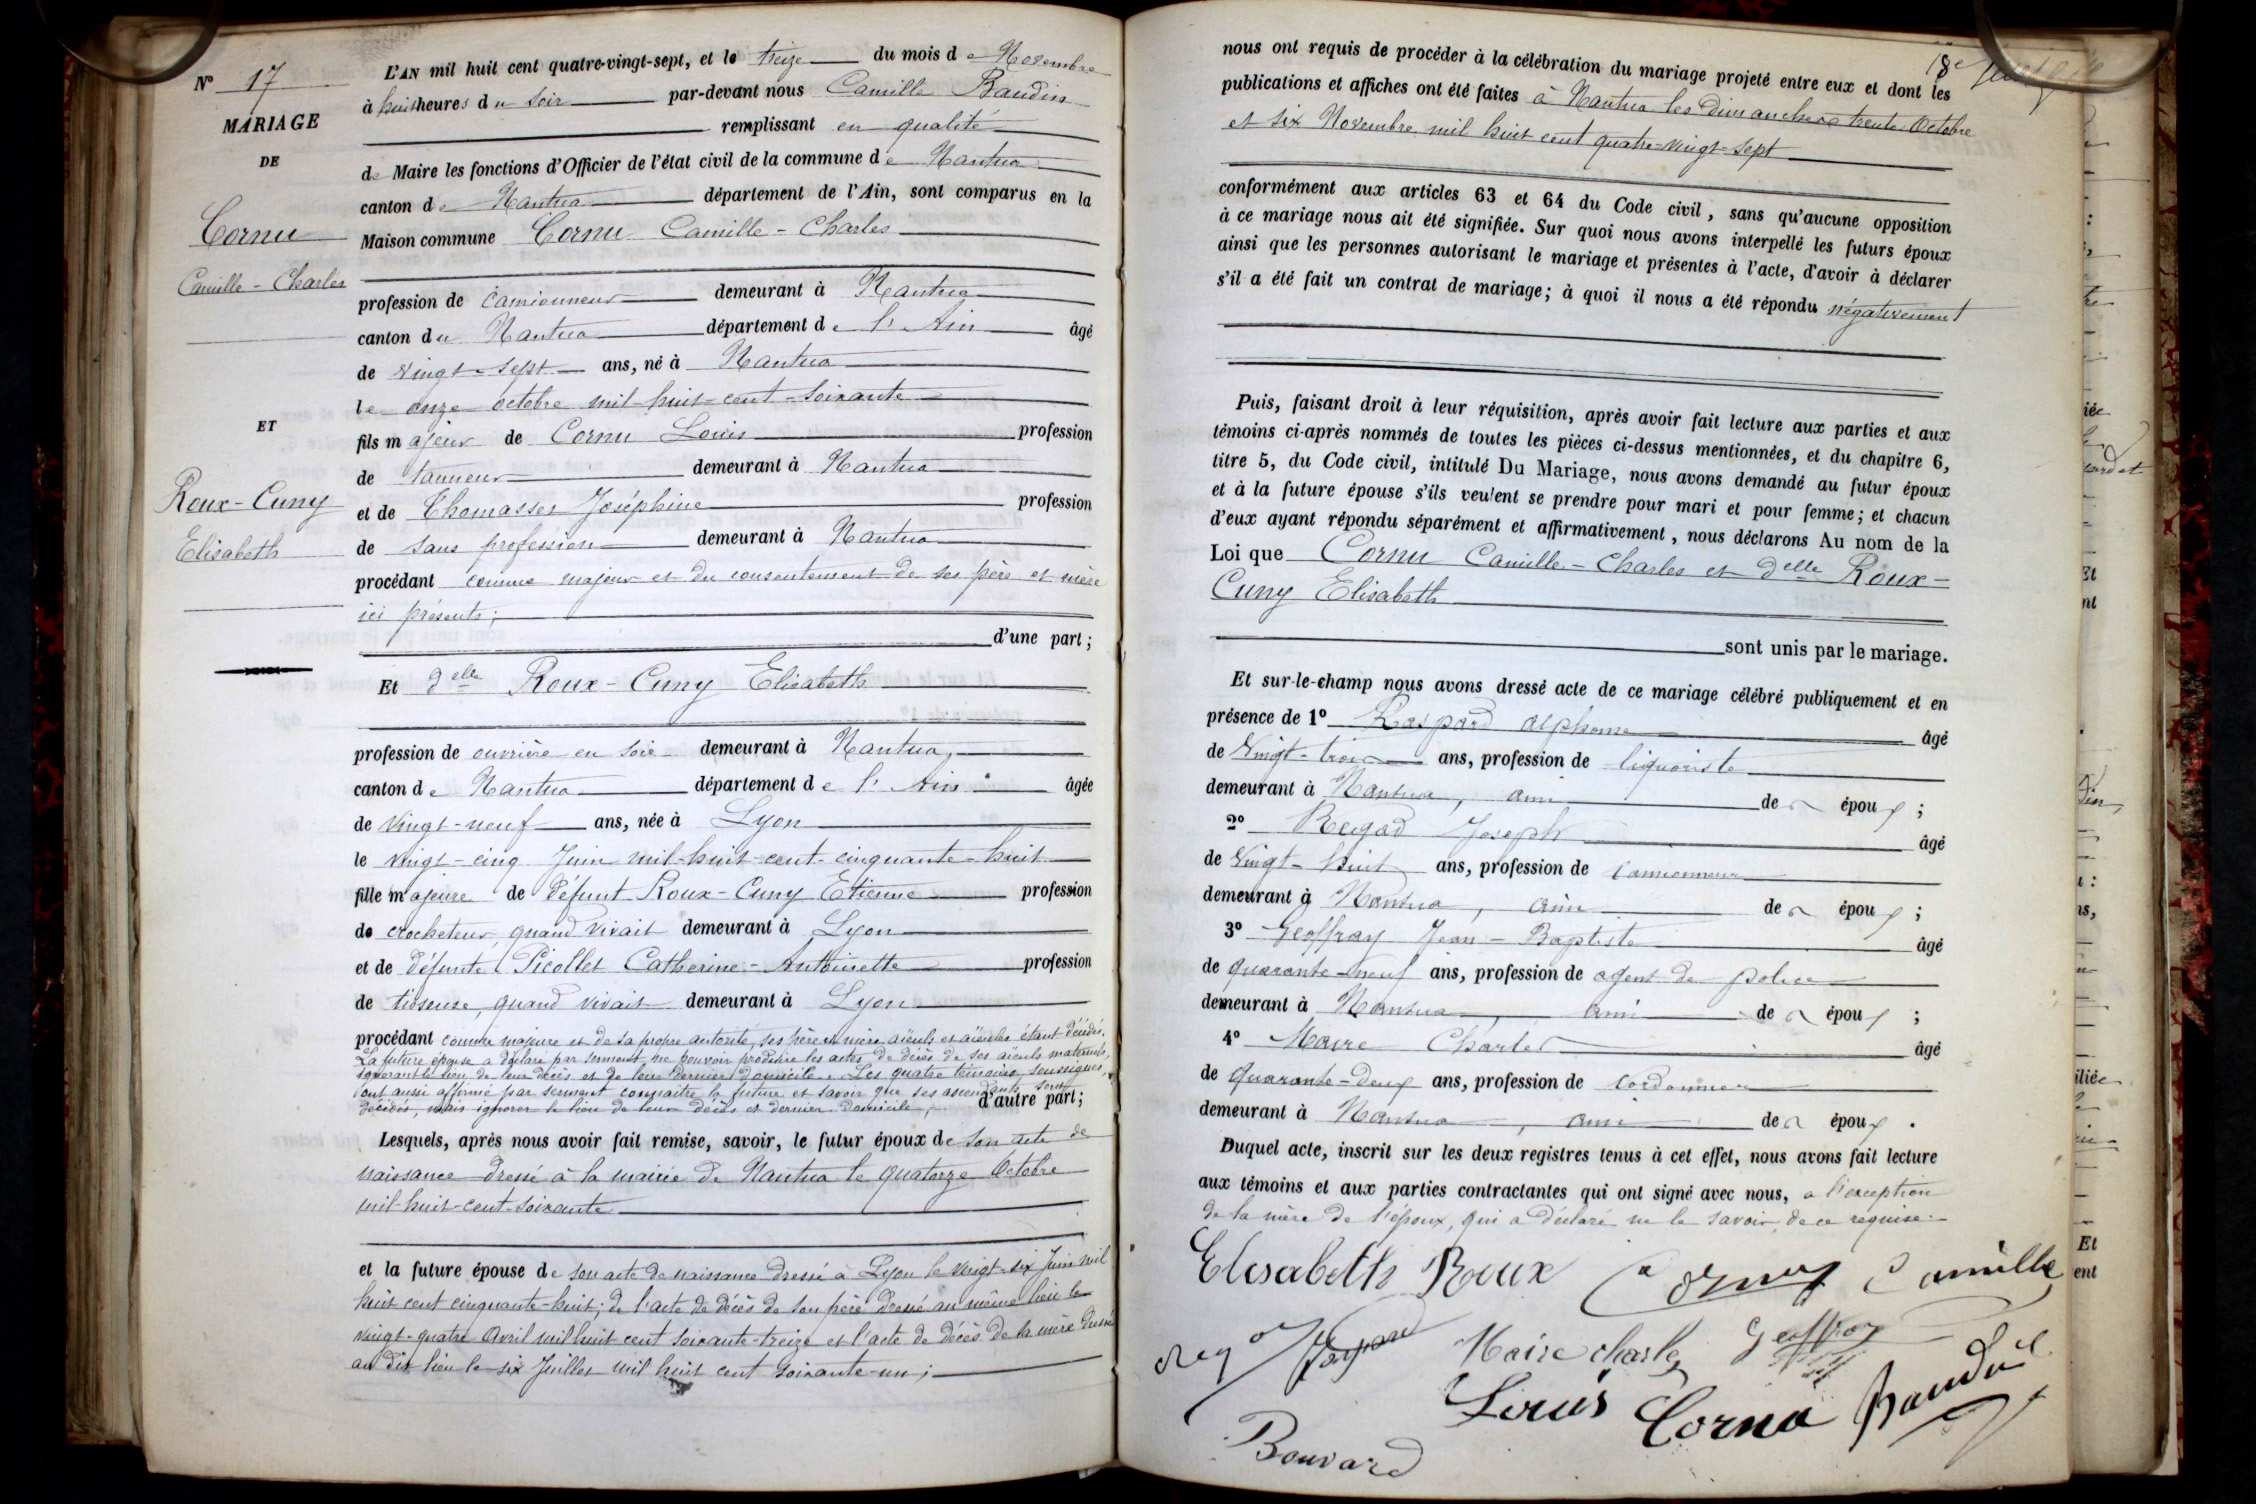 N° 17
MARIAGE
DE
Cornu
Camille - Charles
ET
Roux-Cuny
Elisabeth
L'AN mil huit cent quatre-vingt-sept, et le treize du mois de Novembre
à huit heures du soir par-devant nous Camille Baudin
remplissant en qualité
de Maire les fonctions d'Officier de l'état civil de la commune de Nantua
canton de Nantua département de l'Ain, sont comparus en la
Maison commune Cornu Camille - Charles
profession de camionneur demeurant à Nantua
canton du Nantua département de l'Ain âgé
de vingt-sept ans, né à Nantua
le onze octobre mil-huit-cent-soixante
fils majeur de Cornu Louis profession
de tanneur demeurant à Nantua
et de Thomasset Joséphine profession
de sans profession demeurant à Nantua
procédant comme majeur et du consentement de ses père et mère
ici présents;
d'une part;
Et delle Roux-Cuny Elisabeth
profession de ouvrière en soie demeurant à Nantua,
canton de Nantua département de l'Ain âgée
de vingt-neuf ans, née à Lyon
le vingt-cinq Juin mil-huit-cent-cinquante-huit
fille majeure de défunt Roux-Cuny Etienne profession
de crocheteur, quand vivait demeurant à Lyon
et de défunte Picollet Catherine-Antoinette profession
de tisseuse, quand vivait demeurant à Lyon
procédant comme majeure et de sa propre autorité, ses père et mère, aïeuls et aïeules étant décédés.
La future épouse a déclaré par serment, ne pouvoir produire les actes de décès de ses aïeuls maternels,
ignorant le lieu de leur décès et de leur dernier domicile. Les quatre témoins soussignés,
ont aussi affirmé par serment connaître la future et savoir que ses ascendants sont
décédés, mais ignorer le lieu de leur décès et dernier domicile; d'autre part;
Lesquels, après nous avoir fait remise, savoir, le futur époux de son acte de
naissance dressé à la mairie de Nantua le quatorze Octobre
mil-huit-cent-soixante
et la future épouse de son acte de naissance dressé à Lyon le vingt-six Juin mil
huit cent cinquante-huit; de l'acte de décès de son père dressé au même lieu le
vingt-quatre Avril mil huit cent soixante-treize et l'acte de décès de la mère dressé
au dit lieu le six Juillet mil huit cent soixante-un;
nous ont requis de procéder à la célébration du mariage projeté entre eux et dont les
publications et affiches ont été faites à Nantua les dimanches trente Octobre
et six Novembre mil huit cent quatre-vingt-sept
conformément aux articles 63 et 64 du Code civil, sans qu'aucune opposition
à ce mariage nous ait été signifiée. Sur quoi nous avons interpellé les futurs époux
ainsi que les personnes autorisant le mariage et présentes à l'acte, d'avoir à déclarer
s'il a été fait un contrat de mariage; à quoi il nous a été répondu négativement
Puis, faisant droit à leur réquisition, après avoir fait lecture aux parties et aux
témoins ci-après nommés de toutes les pièces ci-dessus mentionnées, et du chapitre 6,
titre 5, du Code civil, intitulé Du Mariage, nous avons demandé au futur époux
et à la future épouse s'ils veulent se prendre pour mari et pour femme; et chacun
d'eux ayant répondu séparément et affirmativement, nous déclarons Au nom de la
Loi que Cornu Camille-Charles et delle Roux-
Cuny Elisabeth
sont unis par le mariage.
Et sur-le-champ nous avons dressé acte de ce mariage célébré publiquement et en
présence de 1° Raspard Alphonse âgé
de Vingt-trois ans, profession de liquoriste
demeurant à Nantua, ami de époux;
2° Regad Joseph âgé
de Vingt-huit ans, profession de camionneur
demeurant à Nantua, ami de époux;
3° Geoffray Jean-Baptiste âgé
de quarante-neuf ans, profession de agent de police
demeurant à Nantua, ami de époux;
4° Maire Charles âgé
de Quarante-deux ans, profession de cordonnier
demeurant à Nantua, ami de époux.
Duquel acte, inscrit sur les deux registres tenus à cet effet, nous avons fait lecture
aux témoins et aux parties contractantes qui ont signé avec nous, a l'exception
de la mère de l'époux, qui a déclaré ne le savoir, de ce requise.
Elisabeth Roux Cornu Camille
Maire charle Geoffray
Louis Cornu Baudin
Bouvard